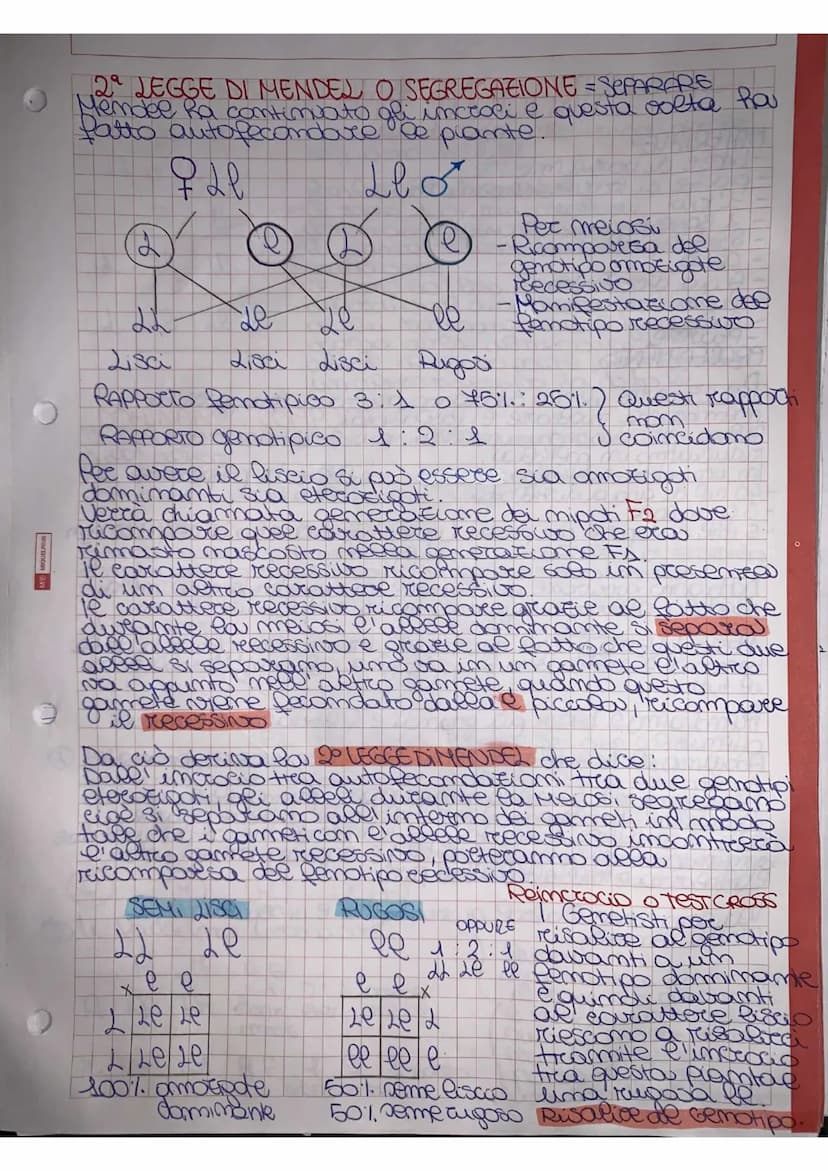 2ª LEGGE DI MENDEL O SEGREGAZIONE = SEPARARE
Mendel ha continuato gli incroci e questa volta ha
fatto autofecondare le piante.
♀ Ll Ll ♂
L l L l
Per meiosi
- Ricomparsa del
genotipo omozigote
recessivo
- Manifestazione del
fenotipo recessivo
LL Ll Ll ll
Lisci Lisci Lisci Rugosi
RAPPORTO fenotipico 3:1 o 75%:25% } Questi rapporti
non
RAPPORTO genotipico 1:2:1 coincidono
Per avere il liscio si può essere sia omozigoti
dominanti sia eterozigoti.
Verrà chiamata generazione dei nipoti F2 dove
ricompare quel carattere recessivo che era
rimasto nascosto nella generazione F1.
Il carattere recessivo ricompare solo in presenza
di un altro carattere recessivo.
Il carattere recessivo ricompare grazie al fatto che
durante la meiosi l'allele dominante si separa
dall'allele recessivo e grazie al fatto che questi due
alleli si separano, uno va in un gamete e l'altro
va appunto nell'altro gamete, quando questo
gamete viene fecondato dalla l piccola, ricompare
il recessivo
Da ciò deriva la 2ª LEGGE DI MENDEL che dice:
Dall'incrocio tra autofecondazioni tra due genotipi
eterozigoti, gli alleli durante la Meiosi segregano
cioè si separano all'interno dei gameti in modo
tale che i gameti con l'allele recessivo incontrerà
l'altro gamete recessivo, porteranno alla
ricomparsa del fenotipo recessivo.
SEMI LISCI
LL Ll
x l l
L Ll Ll
L Ll Ll
100% omozigote
dominante
RUGOSI
ll
OPPURE
1:2:1
LL Ll ll
l l x
Ll Ll L
ll ll l
50% seme liscio
50% seme rugoso
Reincrocio o TESTCROSS
I Genetisti per
risalire al genotipo
davanti a un
fenotipo dominante
e quindi davanti
al carattere liscio
riescono a risalirci
tramite l'incrocio
tra questa pianta e
una rugosa ll.
Risalire al Genotipo.
MIQUELRIUS